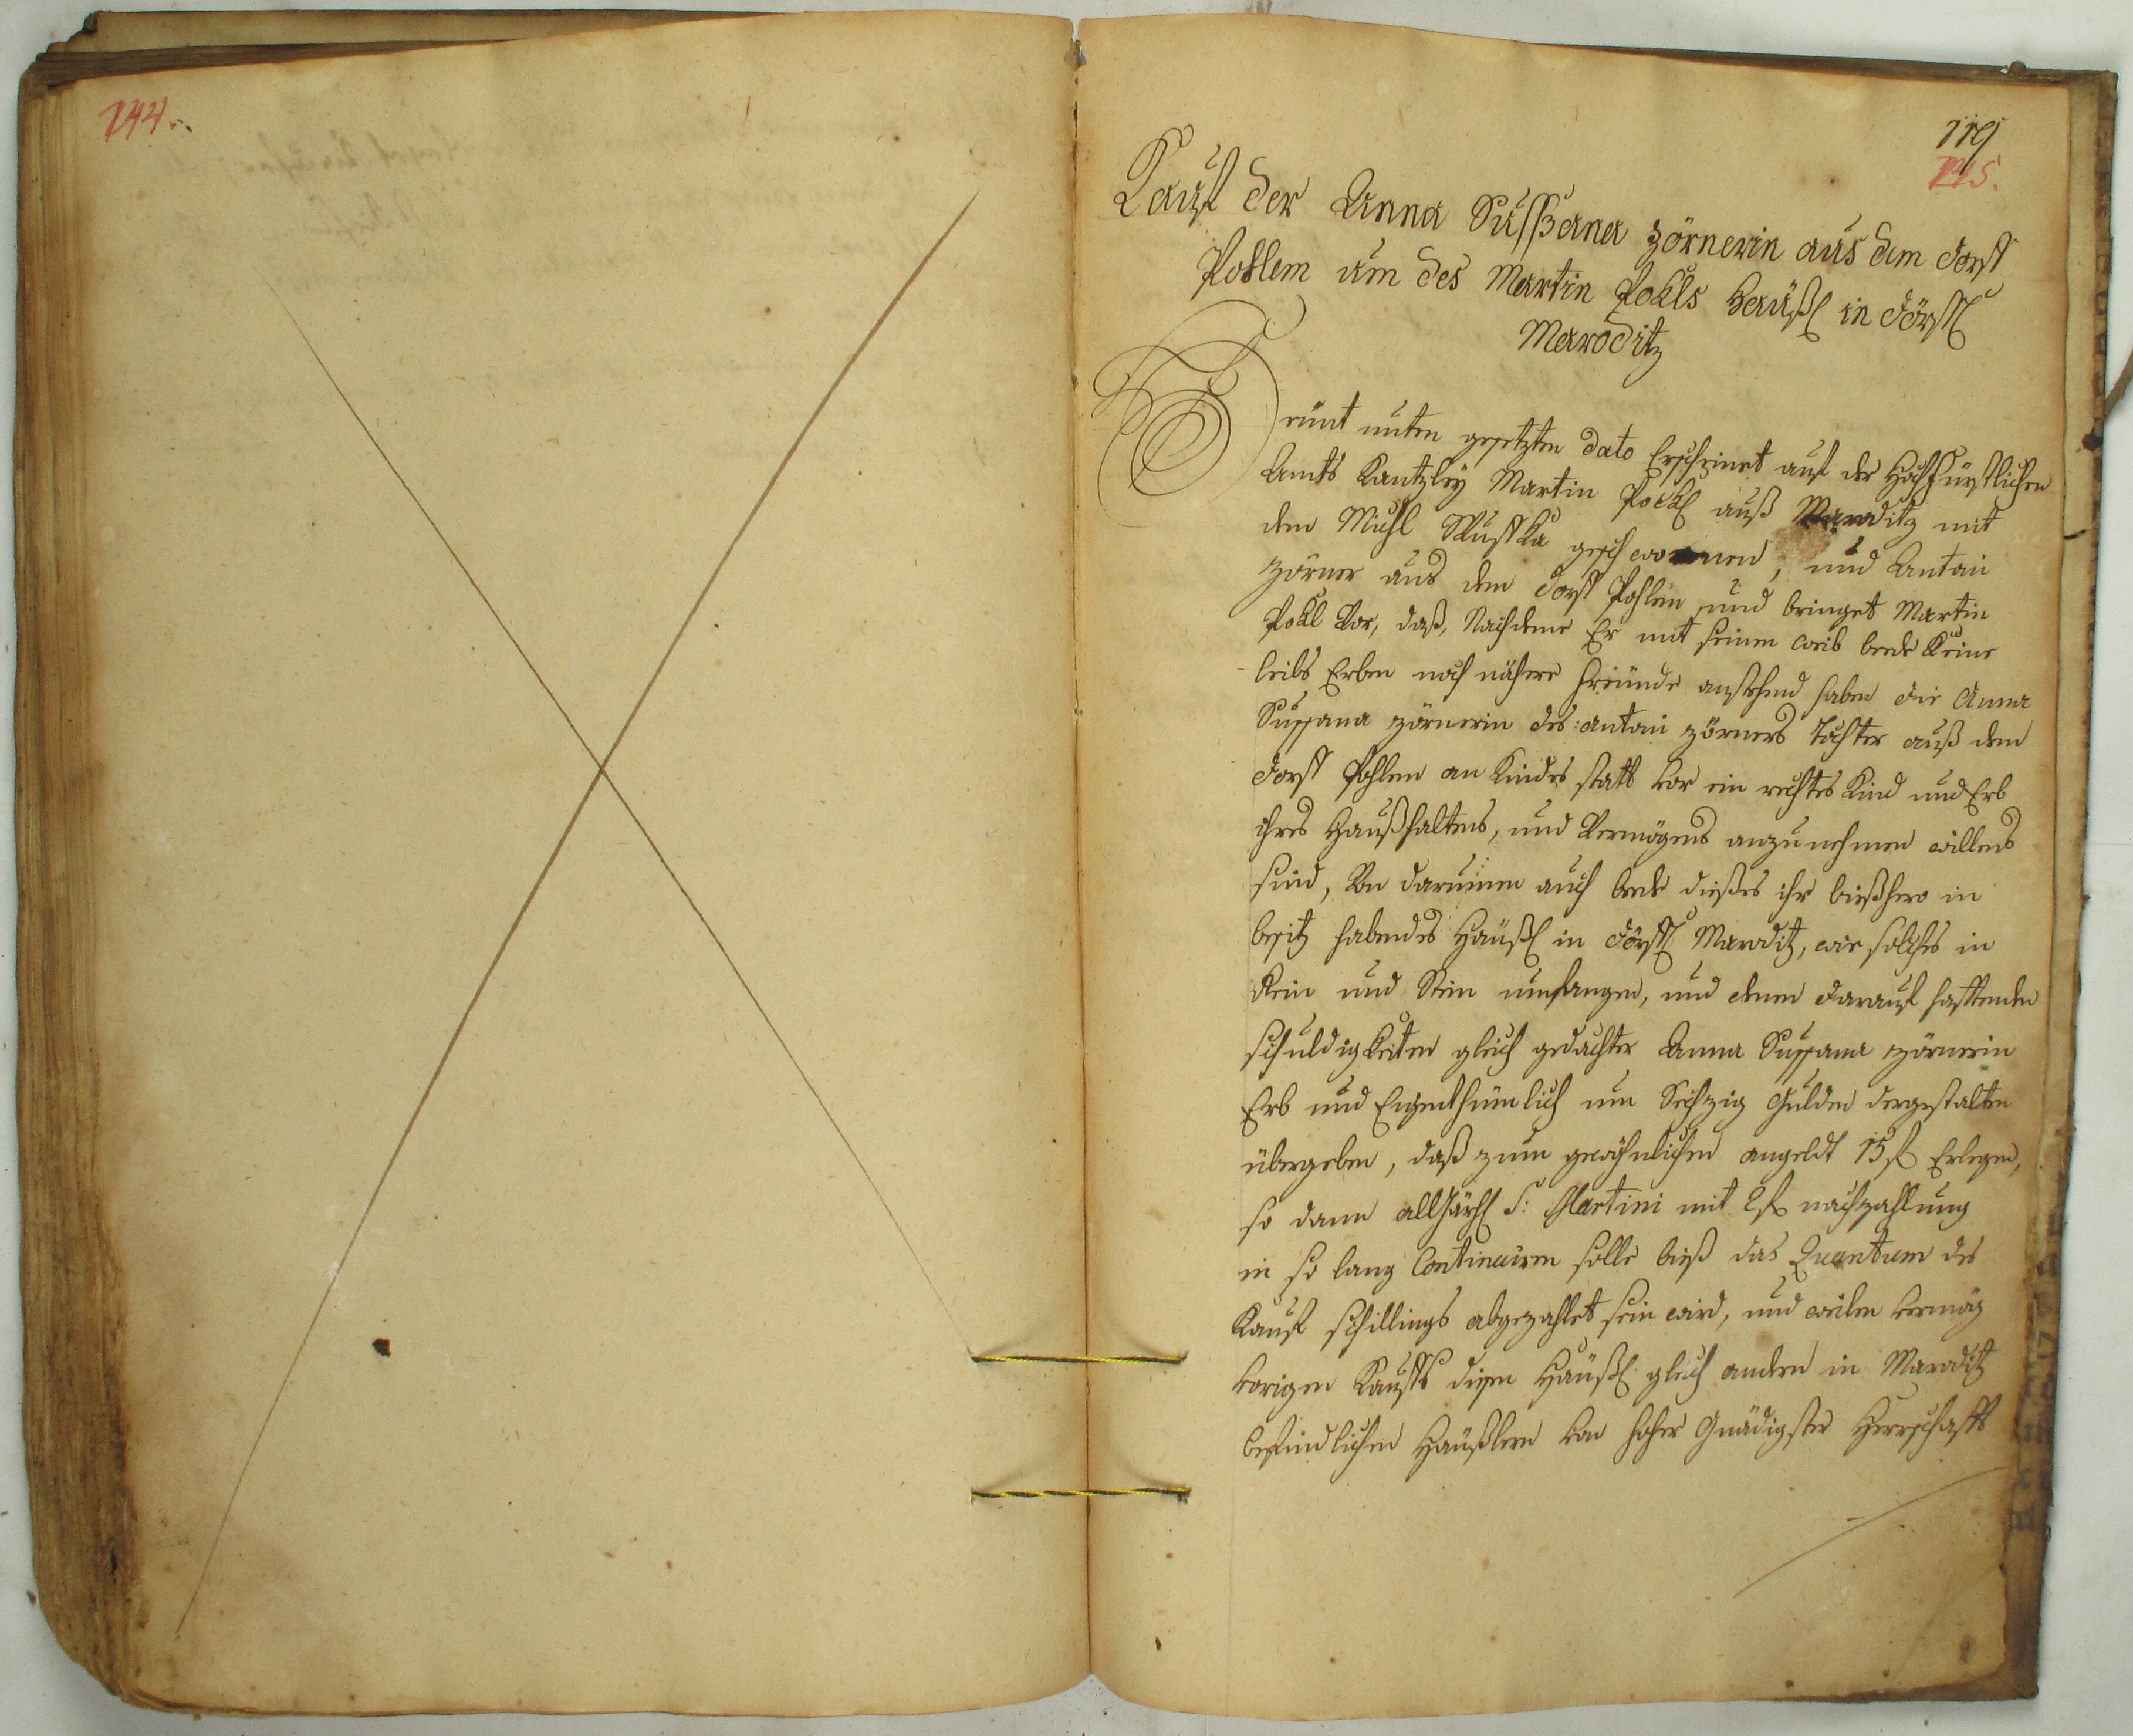 144.
119
145.
Kauf der Anna Sussana Zörnerin aus dem Dorff
Pohlem um des Martin Pokls Häußl in Dörffl
Maroditz
Heunt unten gesetzten dato Erscheinet auf der Hochfürstlichen
Ambts Kantzley Martin Pockl auß Maroditz mit
dem Michl geschwornen, und Antoni
Zörner aus dem Dorff Pohlem und bringet Martin
Pokl vor, daß, Nachdeme Er mit seinem weib beede Keine
leibs Erben noch nähere Freünde anstehend haben die Anna
Sussana Zörnerin des Antoni Zörners Tochter auß dem
Dorff Pohlem an Kindes statt vor ein rechtes Kind und Erb
ihres Haußhaltens, und Vermögens anzunehmen willens
sind, Von darumen auch beede dießes ihr bießhero in
besitz habendes Häußl in Dörffl Maroditz, wie solches in
Rein und Stein umfangen, und denen darauf hafftenden
schuldigkeiten gleich gedachter Anna Sussana Zörnerin
Erb und Eigenthümlich um Sechzig Gulden dergestalten
übergeben, daß zum gewöhnlichen angeldt 15 f Erlegen,
so dann allJährl S: Martini mit 2 f nachzahlung
in so lang Continuiren solle bieß das Quantum des
Kauf schillings abgezahlet sein wird, und weilen vermög
vorigen Kauffs diesen Häußl gleich andern in Maroditz
befindlichen Häußlern von hoher Gnädigster Herrschafft